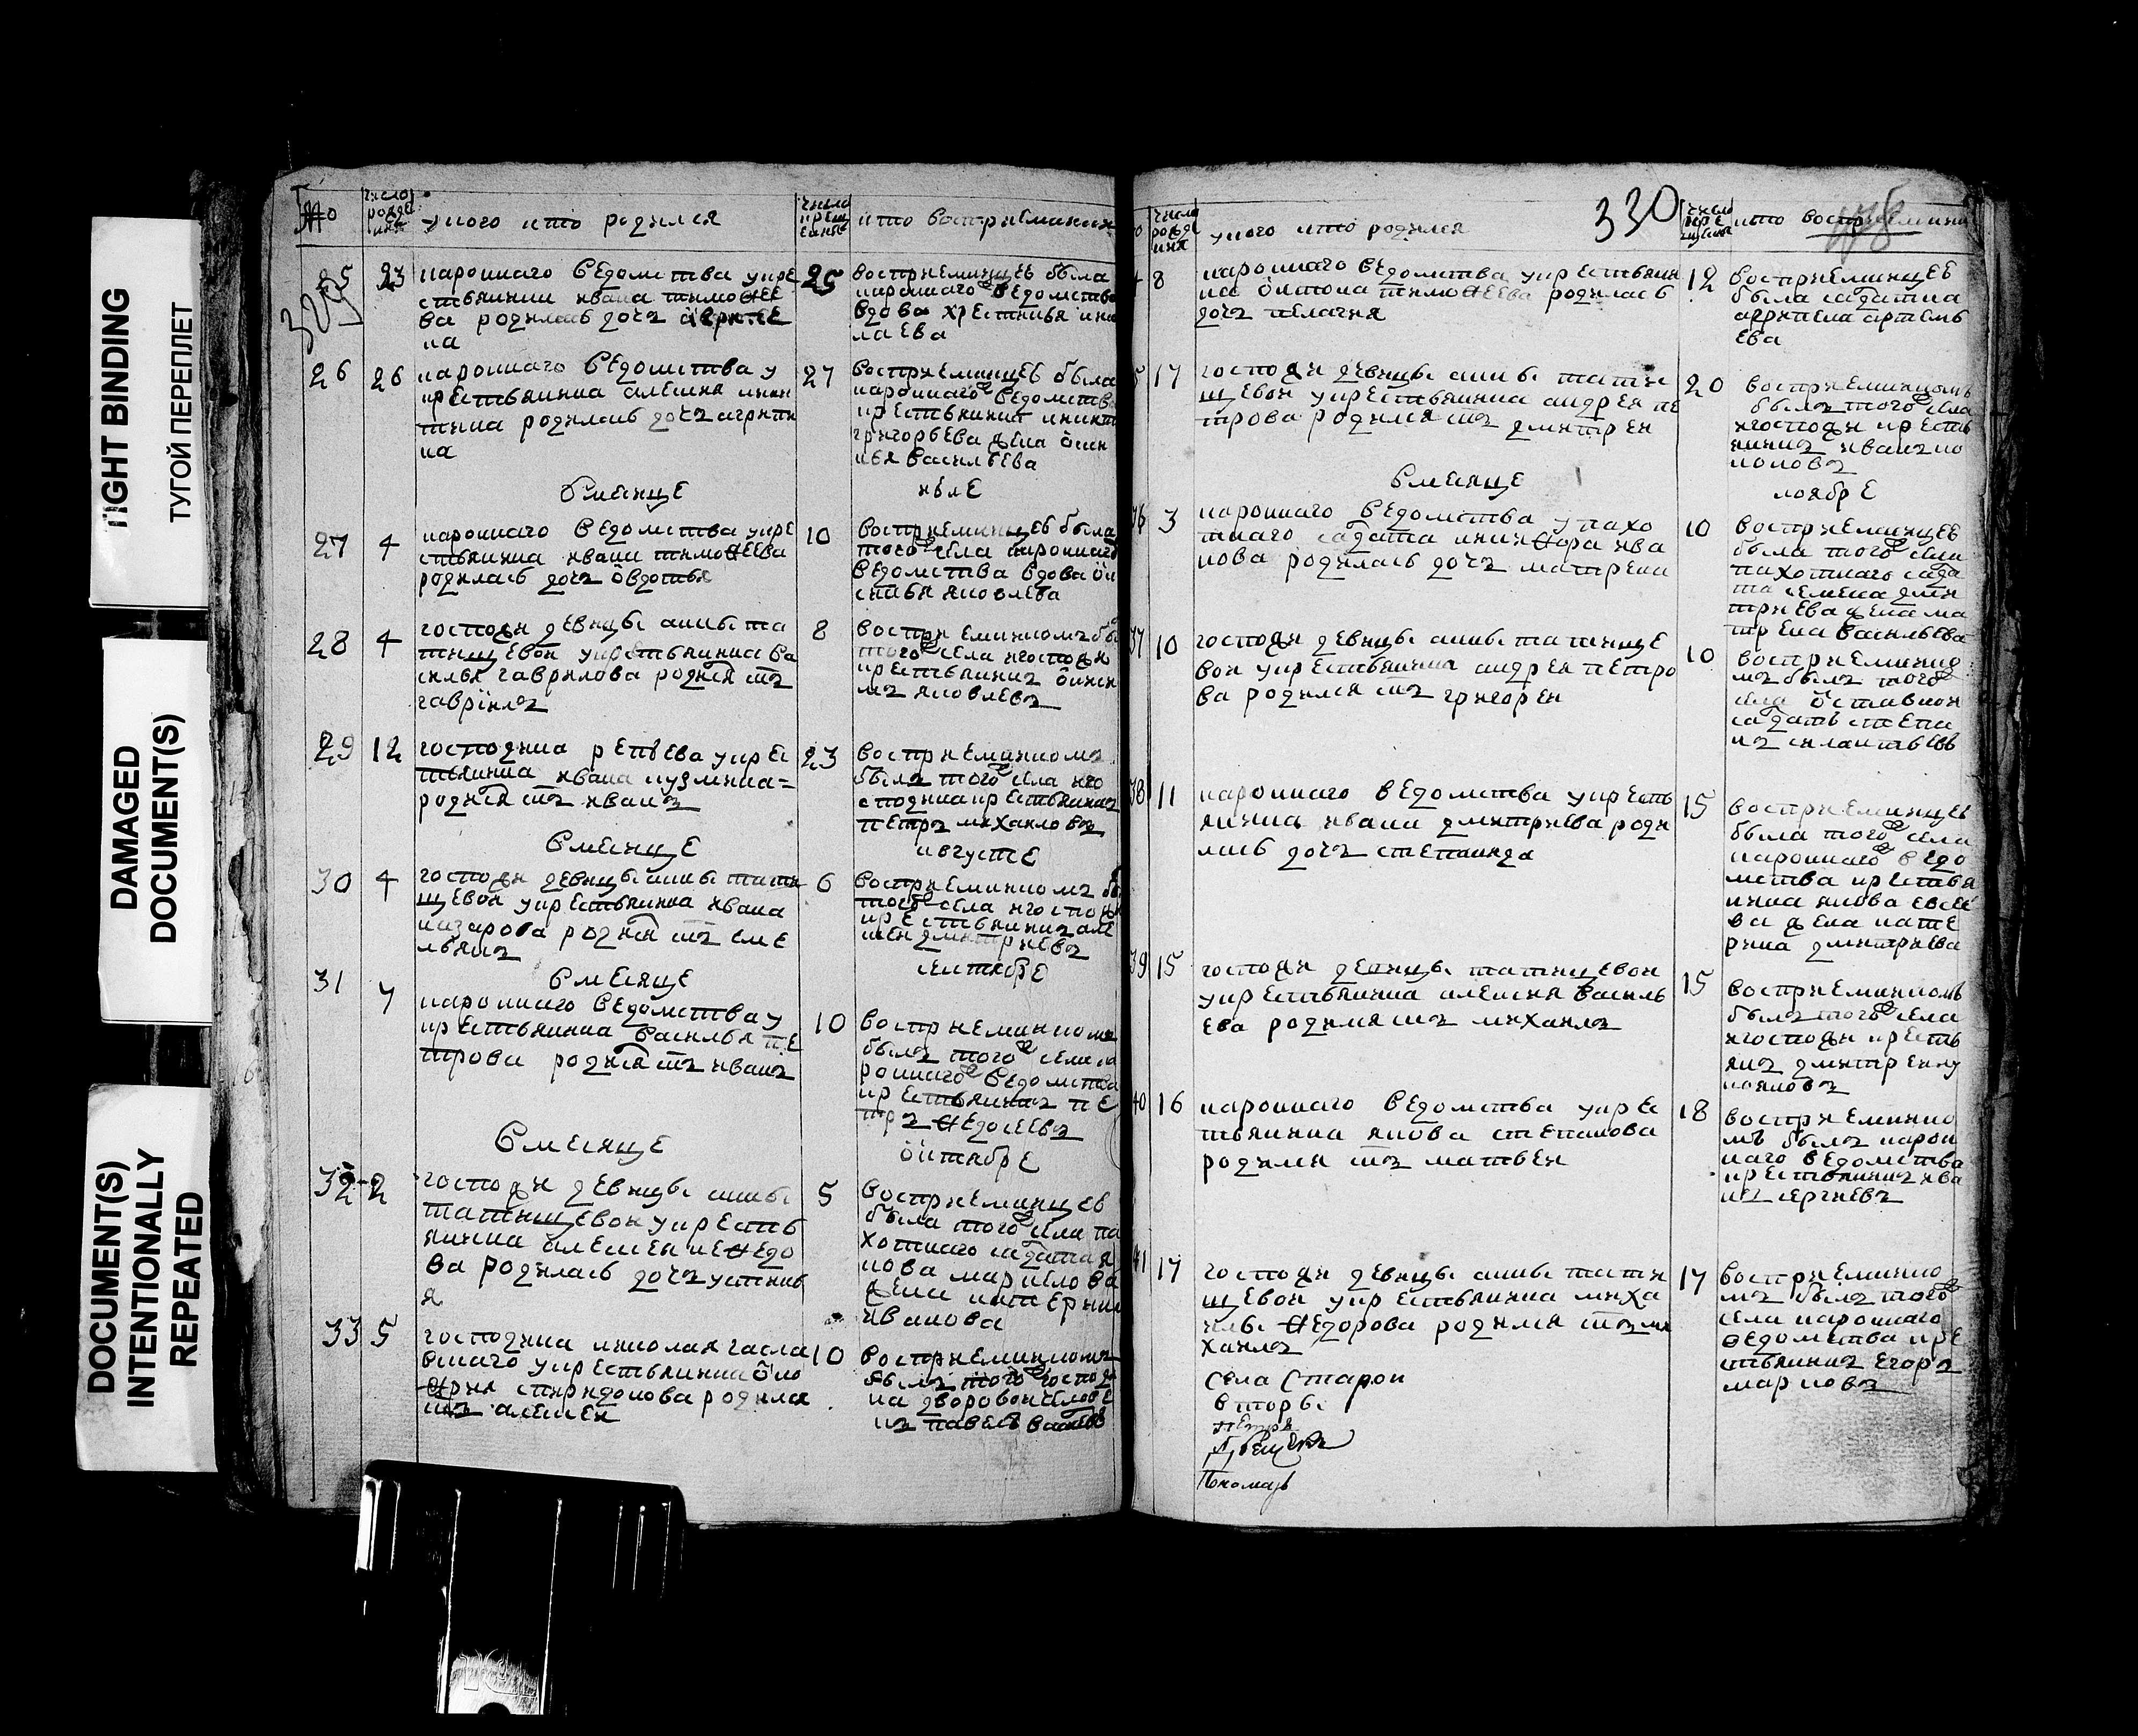 TIGHT BINDING
ТУГОЙ ПЕРЕПЛЕТ
DAMAGED
DOCUMENT(S)
DOCUMENT(S)
INTENTIONALLY
REPEATED
число
рожде
ния
у кого кто родился
число
крещ
ения
кто восприемники
25
23
каронного ведомства у кре
стьянина ивана тимоѳее
ва родилась дочъ
на
25
восприемницеѣ была
каронного ведомства
вдова хрестинья ника
лаева
26
26
каронного ведомства у
крестьянина алексия ники
тина родилась дочъ агрипи
на
27
восприемницеѣ была
каронного ведомства
крестьянина никит
григорьева жена оксин
ья васильева
в месяце
июле
27
4
каронного ведомства у кре
стьянина ивана тимоѳеева
родилась дочъ овдотья
10
восприемницеѣ была
того села каронного
ведомства вдова
яковлева
28
4
госпожи девицы анны та
тищевои у крестьянина ва
силья гаврилова родися сынъ
гаврiилъ
8
восприемникомъ бы
того села и госпожи
крестьянинъ
мъ яковлевъ
29
12
господина репьева у крес
тьянина ивана кузмина
родися сынъ иванъ
23
восприемникомъ
былъ того села и го
сподина крестьянинъ
петръ михаиловъ
в месяце
августе
30
4
госпожи девицы анны тати
щевои у крестьянина ивана
назарова родися сынъ еме
льянъ
6
восприемникомъ бы
того села и госпожи
крестьянинъ але
ксеи дмитриевъ
в месяце
сентябре
31
7
каронного ведомства у
крестьянина василья пе
трова родися сынъ иванъ
10
восприемникомъ
былъ того села ка
ронного ведомства
крестьянинъ пе
тръ ѳедосеевъ
в месяце
октябре
32
2
госпожи девицы анны
татищевои у крестьь
янина алексея неѳедо
ва родилась дочъ устинь
я
5
восприемницеѣ
была того села па
хотнаго салдата я
кова маркелова
жена катерина
иванова
33
5
господина николая
у крестьянина оно
ѳрия спиридонова родился
сынъ алексеи
10
восприемникомъ
былъ того господи
на дворовои челове
къ павелъ
330
число
рожде
ния
у кого кто родился
кто восприемники
8
каронного ведомства у крестьянин
на антона тимоѳеева родилась
дочъ пелагия
12
восприемницеѣ
была салдатка
агрипена артемь
ева
17
госпожи девицы анны тати
щевои у крестьянина андрея пе
трова родился сынъ дмитреи
20
восприемникомъ
былъ того села
и госпожи кресть
янинъ иванъ ко
ноновъ
в месяце
ноябре
36
3
каронного ведомства у пахо
тнаго салдата никиѳора ива
нова родилась дочъ матрена
10
восприемницеѣ
была того села
пахотнаго салда
та семена дми
триева жена ма
трена васильева
37
10
госпожи девицы анны татище
вои у крестьянина андрея петро
ва родился сынъ григореи
10
восприемнико
мъ былъ того
села оставнои
салдатъ степа
нъ силантьевъ
38
11
каронного ведомства у кресть
янина ивана дмитриева роди
лась дочъ степанида
15
восприемницеѣ
была того села
каронного ведо
мства крестья
нина якова евсее
ва жена кате
рина дмитриева
39
15
госпожи девицы татищевои
у крестьянина алексея василь
ева родился сынъ михаилъ
15
восприемникомъ
былъ того села
и госпожи кресть
янъ дмитреи лу
кояновъ
40
16
каронного ведомства у крес
тьянина якова степанова
родился сынъ матвеи
18
восприемнико
мъ былъ карон
наго ведомства
крестьянинъ ива
нъ сергиевъ
41
17
госпожи девицы анны тати
щевои у крестьянина миха
илы ѳедорова родился сынъ ми
хаилъ
17
восприемнико
мъ былъ того
села каронного
ведомства кре
стьянинъ егоръ
марковъ
села Старои
Пономарь